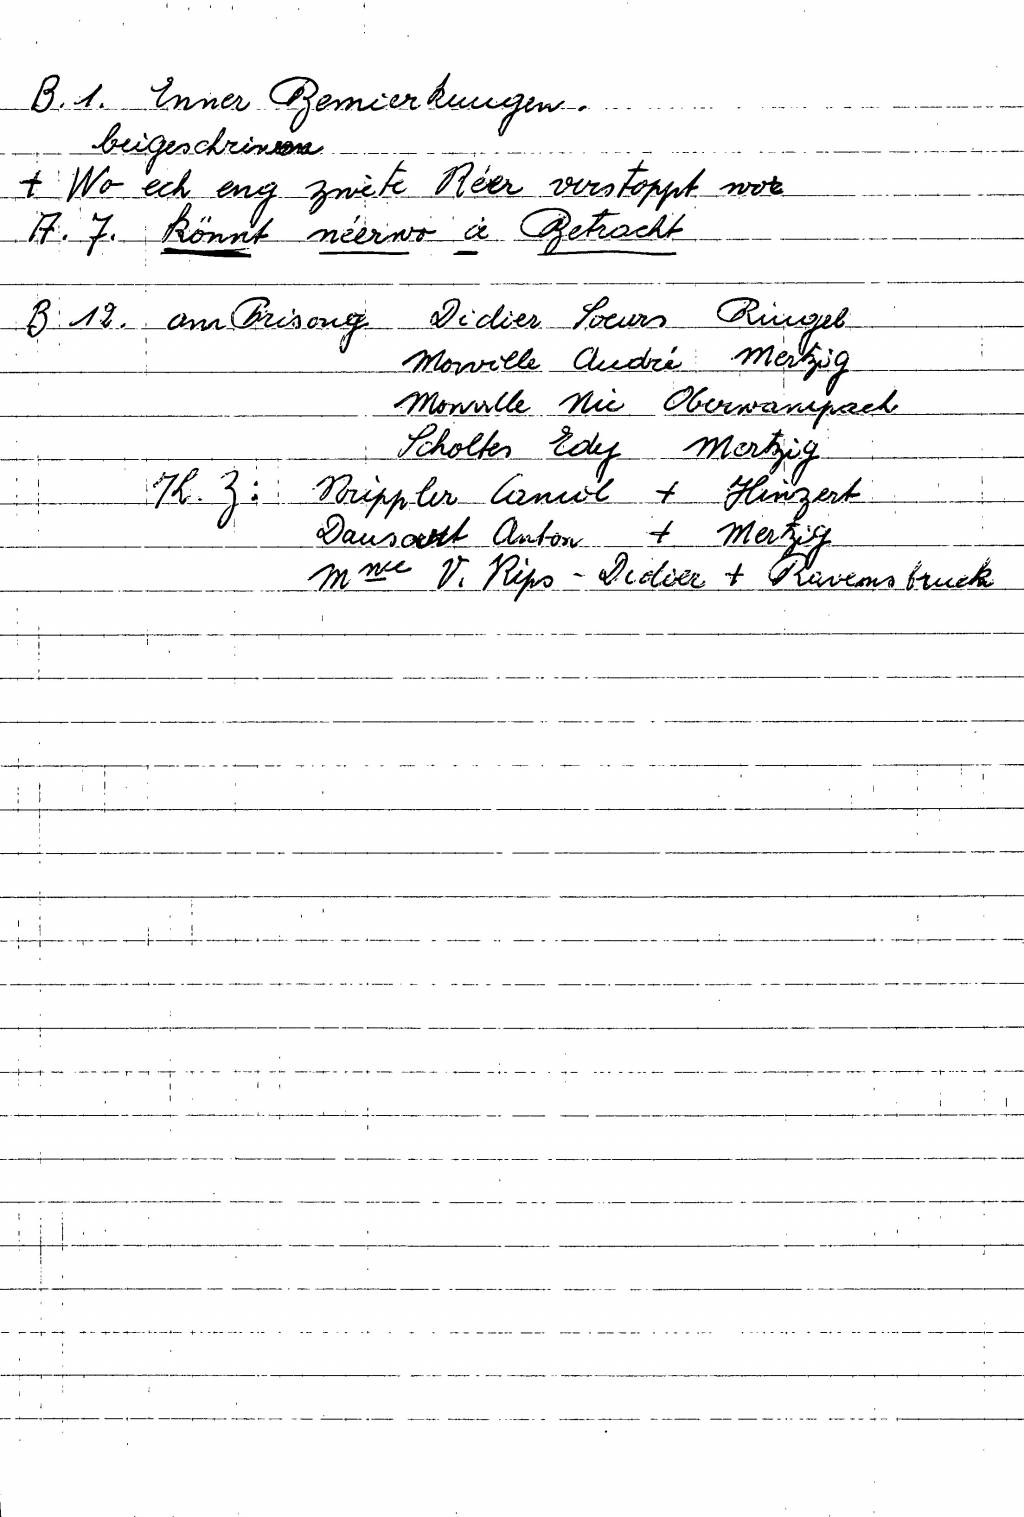 B. 1. Enner Bemierkungen.
beigeschriwen
+ Wo ech eng zwète Réer verstoppt wor
A. 7. könnt néerwo à Betracht
B 12. am Prisong Didier Soeurs Ringel
Monville André Mertzig
Monville Nic Oberwampach
Scholtes Edy Mertzig
Th. Z: Trippler Camil + Hinzert
Dausautt Anton + Mertzig
Mme V. Rips - Didier + Ravensbruck